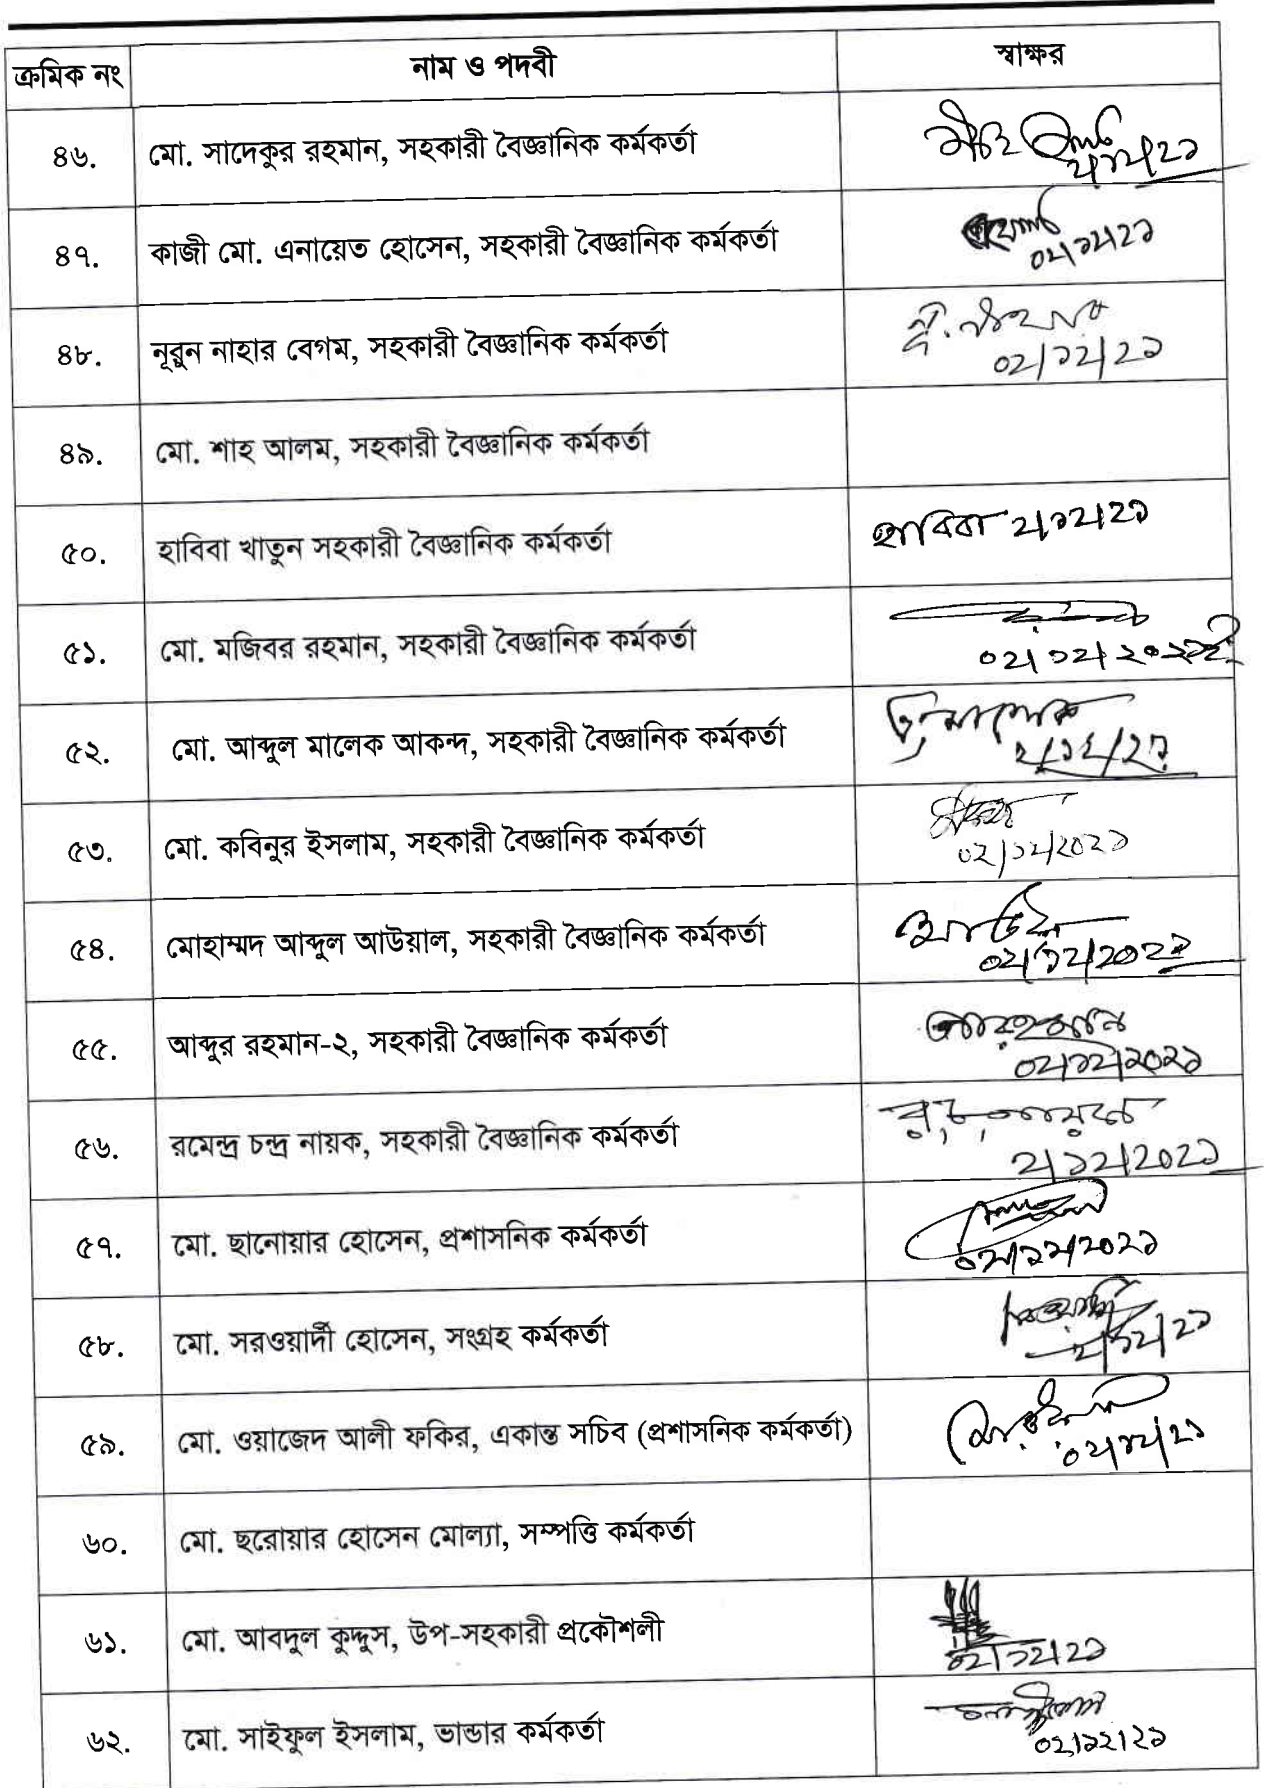 ক্রমিক নং নাম ও পদবী স্বাক্ষর
৪৬. মো. সাদেকুর রহমান, সহকারী বৈজ্ঞানিক কর্মকর্তা ২/১২/২১
৪৭. কাজী মো. এনায়েত হোসেন, সহকারী বৈজ্ঞানিক কর্মকর্তা ০২/১২/২১
৪৮. নূরুন নাহার বেগম, সহকারী বৈজ্ঞানিক কর্মকর্তা ০২/১২/২১
৪৯. মো. শাহ আলম, সহকারী বৈজ্ঞানিক কর্মকর্তা
৫০. হাবিবা খাতুন সহকারী বৈজ্ঞানিক কর্মকর্তা হাবিবা ২/১২/২১
৫১. মো. মজিবর রহমান, সহকারী বৈজ্ঞানিক কর্মকর্তা ০২/১২/২০২১ইং
৫২. মো. আব্দুল মালেক আকন্দ, সহকারী বৈজ্ঞানিক কর্মকর্তা ২/১২/২১
৫৩. মো. কবিনুর ইসলাম, সহকারী বৈজ্ঞানিক কর্মকর্তা ০২/১২/২০২১
৫৪. মোহাম্মদ আব্দুল আউয়াল, সহকারী বৈজ্ঞানিক কর্মকর্তা ০২/১২/২০২১
৫৫. আব্দুর রহমান-২, সহকারী বৈজ্ঞানিক কর্মকর্তা আঃ রহমান
০২/১২/২০২১
৫৬. রমেন্দ্র চন্দ্র নায়ক, সহকারী বৈজ্ঞানিক কর্মকর্তা ২/১২/২০২১
৫৭. মো. ছানোয়ার হোসেন, প্রশাসনিক কর্মকর্তা ০২/১২/২০২১
৫৮. মো. সরওয়ার্দী হোসেন, সংগ্রহ কর্মকর্তা ২/১২/২১
৫৯. মো. ওয়াজেদ আলী ফকির, একান্ত সচিব (প্রশাসনিক কর্মকর্তা) ০২/১২/২১
৬০. মো. ছরোয়ার হোসেন মোল্যা, সম্পত্তি কর্মকর্তা
৬১. মো. আবদুল কুদ্দুস, উপ-সহকারী প্রকৌশলী ০২/১২/২১
৬২. মো. সাইফুল ইসলাম, ভান্ডার কর্মকর্তা ০২/১২/২১